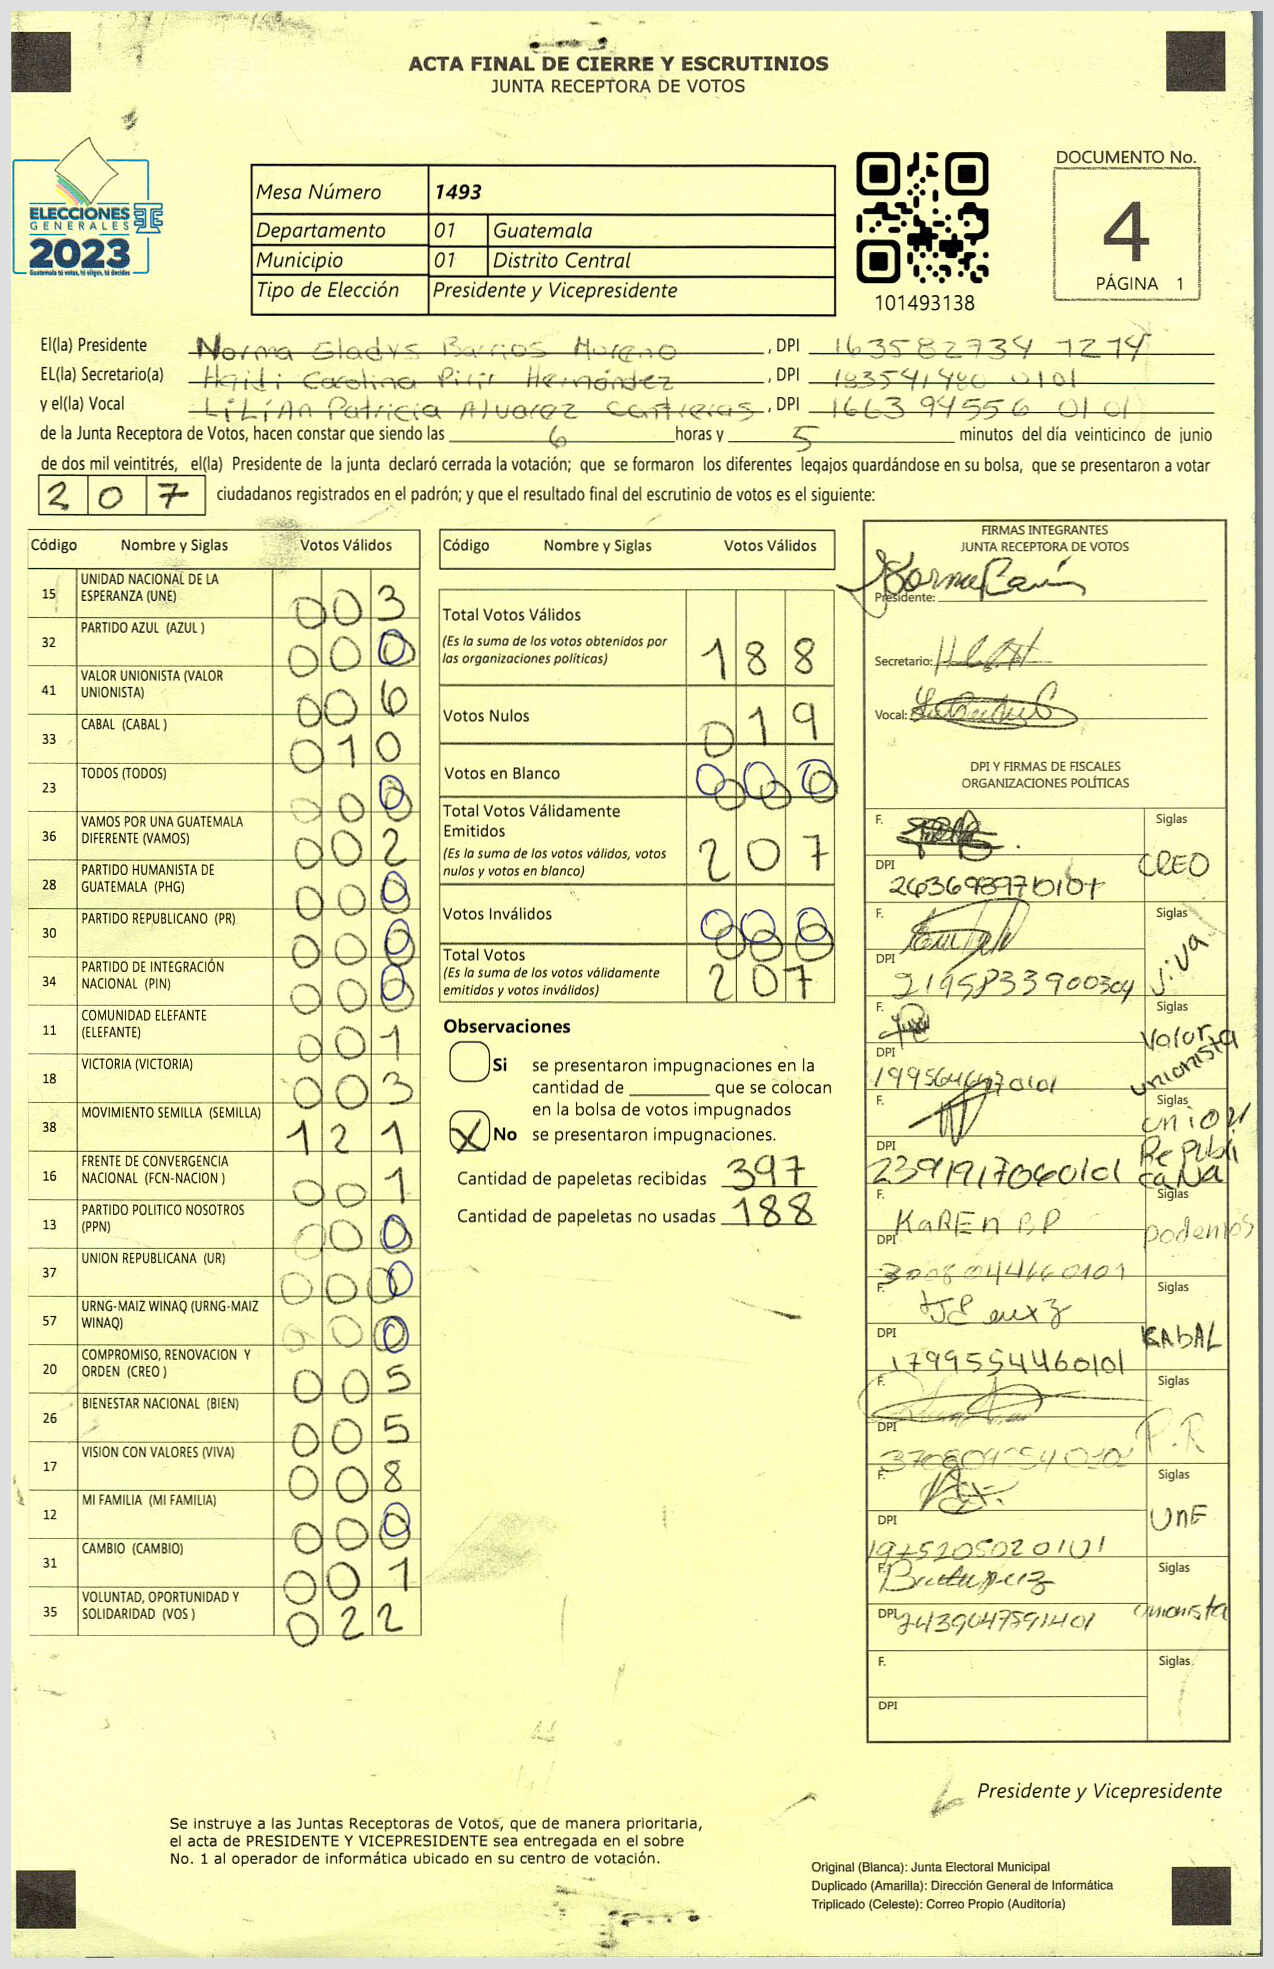 ACTA FINAL DE CIERRE Y ESCRUTINIOS
JUNTA RECEPTORA DE VOTOS
ELECCIONES
GENERALES
2023
Guatemala tú votas, tú eliges, tú decides
Mesa Número 1493
Departamento 01 Guatemala
Municipio 01 Distrito Central
Tipo de Elección Presidente y Vicepresidente
101493138
DOCUMENTO No.
4
PÁGINA 1
El(la) Presidente Norma Gladys Barrios Moreno, DPI 163582734 1214
EL(la) Secretario(a) Haidi Carolina Pirir Hernández, DPI 183541480 0101
y el(la) Vocal LiLiAn Patricia Alvarez Contreras, DPI 1663 94556 0101
de la Junta Receptora de Votos, hacen constar que siendo las 6 horas y 5 minutos del día veinticinco de junio
de dos mil veintitrés, el(la) Presidente de la junta declaró cerrada la votación; que se formaron los diferentes legajos guardándose en su bolsa, que se presentaron a votar
207 ciudadanos registrados en el padrón; y que el resultado final del escrutinio de votos es el siguiente:
Código Nombre y Siglas Votos Válidos
15 UNIDAD NACIONAL DE LA ESPERANZA (UNE) 003
32 PARTIDO AZUL (AZUL ) 000
41 VALOR UNIONISTA (VALOR UNIONISTA) 006
33 CABAL (CABAL ) 010
23 TODOS (TODOS) 000
36 VAMOS POR UNA GUATEMALA DIFERENTE (VAMOS) 002
28 PARTIDO HUMANISTA DE GUATEMALA (PHG) 000
30 PARTIDO REPUBLICANO (PR) 000
34 PARTIDO DE INTEGRACIÓN NACIONAL (PIN) 000
11 COMUNIDAD ELEFANTE (ELEFANTE) 001
18 VICTORIA (VICTORIA) 003
38 MOVIMIENTO SEMILLA (SEMILLA) 121
16 FRENTE DE CONVERGENCIA NACIONAL (FCN-NACION ) 001
13 PARTIDO POLITICO NOSOTROS (PPN) 000
37 UNION REPUBLICANA (UR) 000
57 URNG-MAIZ WINAQ (URNG-MAIZ WINAQ) 000
20 COMPROMISO, RENOVACION Y ORDEN (CREO ) 005
26 BIENESTAR NACIONAL (BIEN) 005
17 VISION CON VALORES (VIVA) 008
12 MI FAMILIA (MI FAMILIA) 000
31 CAMBIO (CAMBIO) 001
35 VOLUNTAD, OPORTUNIDAD Y SOLIDARIDAD (VOS ) 022
Código Nombre y Siglas Votos Válidos
Total Votos Válidos 188
(Es la suma de los votos obtenidos por
las organizaciones políticas)
Votos Nulos 019
Votos en Blanco 000
Total Votos Válidamente
Emitidos 207
(Es la suma de los votos válidos, votos
nulos y votos en blanco)
Votos Inválidos 000
Total Votos 207
(Es la suma de los votos válidamente
emitidos y votos inválidos)
Observaciones
Si se presentaron impugnaciones en la
cantidad de ________ que se colocan
en la bolsa de votos impugnados
X No se presentaron impugnaciones.
Cantidad de papeletas recibidas 397
Cantidad de papeletas no usadas 188
FIRMAS INTEGRANTES
JUNTA RECEPTORA DE VOTOS
Presidente:
Secretario:
Vocal:
DPI Y FIRMAS DE FISCALES
ORGANIZACIONES POLÍTICAS
F. Siglas
DPI CREO
F. Siglas
DPI 2195833900304 Viva
F. Siglas
DPI Valor unionista
F. Siglas
DPI 2391917060101 union Republicana
F. KaREn BP Siglas
DPI 3008044660101 podemos
F. Siglas
DPI 1799554460101 KAbAL
F. Siglas
DPI P.R
F. Siglas
DPI 1975205020101 UnE
F. Siglas
DPI 2439047591401 unionista
F. Siglas
DPI
Presidente y Vicepresidente
Se instruye a las Juntas Receptoras de Votos, que de manera prioritaria,
el acta de PRESIDENTE Y VICEPRESIDENTE sea entregada en el sobre
No. 1 al operador de informática ubicado en su centro de votación.
Original (Blanca): Junta Electoral Municipal
Duplicado (Amarilla): Dirección General de Informática
Triplicado (Celeste): Correo Propio (Auditoría)